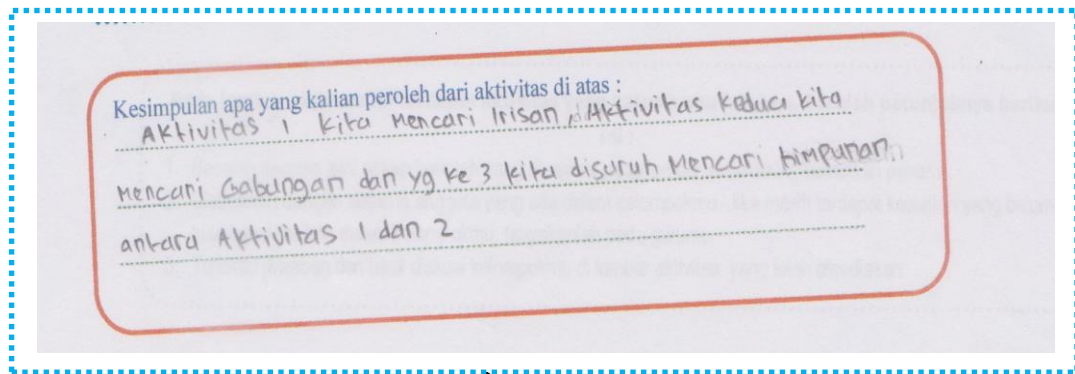 Kesimpulan apa yang kalian peroleh dari aktivitas di atas :
Aktivitas 1 kita Mencari Irisan, Aktivitas kedua kita
Mencari Gabungan dan yg ke 3 kita disuruh Mencari himpunan
antara Aktivitas 1 dan 2